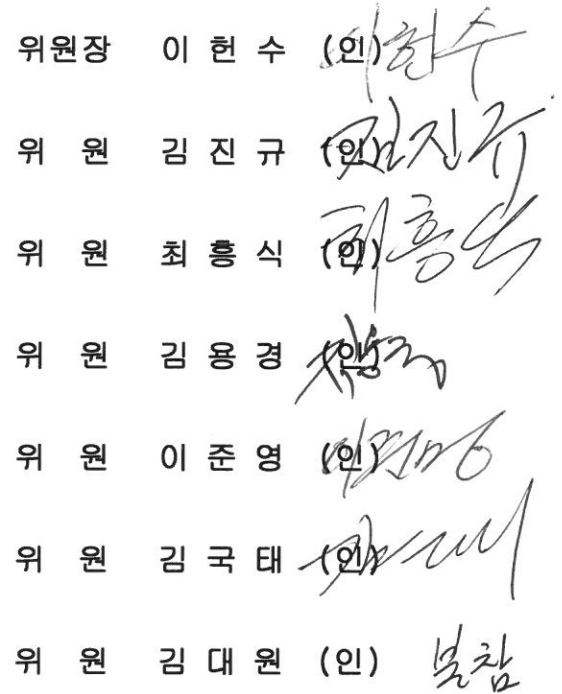 위원장 이 헌 수 (인) 이헌수
위 원 김 진 규 (인) 김진규
위 원 최 흥 식 (인) 최흥식
위 원 김 용 경 (인)
위 원 이 준 영 (인)
위 원 김 국 태 (인)
위 원 김 대 원 (인) 불참